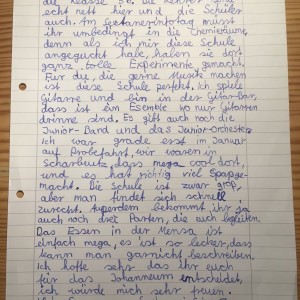 die Klasse 5c. Die Lehrer sind
echt nett hier und die Schüler
auch. Am Sextanerinfotag müsst
ihr unbedingt in die Chemieräume,
denn als ich mir diese Schule
angeguckt habe, haben sie dort
ganz tolle Experimente gemacht.
Für die, die gerne Musik machen
ist diese Schule perfekt. Ich spiele
Gitarre und bin in der Gitar-Band,
das ist ein Esemble wo nur Gitarren
drinne sind. Es gibt auch noch die
Junior-Band und das Junior-Orchester.
Ich war grade erst im Januar
auf Probefahrt, wir waren in
Scharbeutz, dass mega cool dort,
und es hat richtig viel Spaß ge-
macht. Die Schule ist zwar groß,
aber man findet sich schnell
zurecht. Außerdem bekommt ihr ja
auch noch drei Paten, die euch begleiten.
Das Essen in der Mensa ist
einfach mega, es ist so lecker, das
kann man garnicht beschreiben.
Ich hoffe sehr das ihr euch
für das Johanneum entscheidet,
ich würde mich sehr freuen.